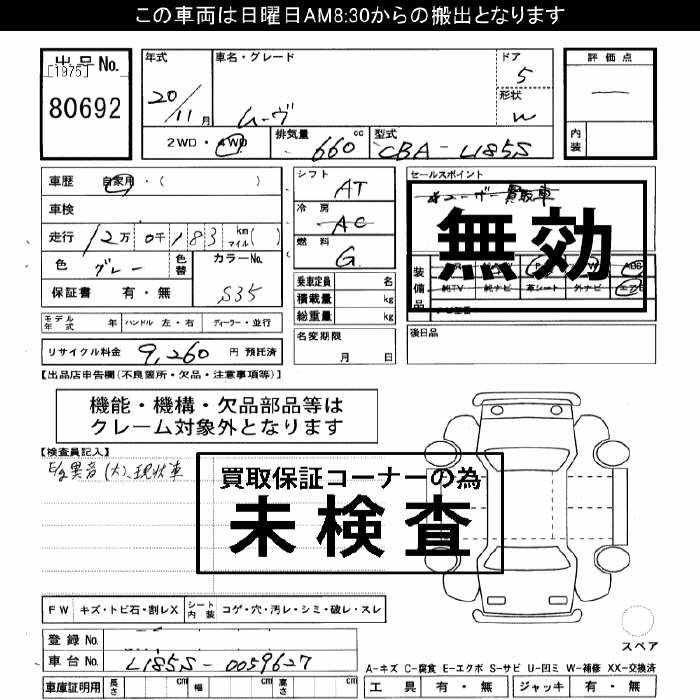 この車両は日曜日AM8:30からの搬出となります
出品No.
[1975]
80692
年式
20/11月
車名・グレード
ムーヴ
ドア
5
形状
W
評価点
―
内装
2WD・4WD
排気量
660cc
型式
CBA-L185S
車歴 自家用・( )
車検
走行 12万0千183km マイル( )
色 グレー
色替
カラーNo.
S35
保証書 有・無
シフト
AT
冷房
AC
燃料
G
乗車定員 名
積載量 kg
総重量 kg
セールスポイント
ユーザー買取車
無効
装備品
純TV 純ナビ 革シート 外ナビ エアB
ABS
モデル年式 年 ハンドル 左・右 ディーラー・並行
名変期限
月 日
後日品
リサイクル料金 9,260 円 預託済
【出品店申告欄(不良箇所・欠品・注意事項等)】
機能・機構・欠品部品等は
クレーム対象外となります
【検査員記入】
E/g異音(大)、現状車
買取保証コーナーの為
未検査
FW キズ・トビ石・割レX シート内装 コゲ・穴・汚レ・シミ・破レ・スレ
登録No.
車台No. L185S-0059627
車庫証明用 長さ cm 幅 cm 高さ cm
スペア
A-キズ C-腐食 E-エクボ S-サビ U-凹ミ W-補修 XX-交換済
工具 有・無 ジャッキ 有・無